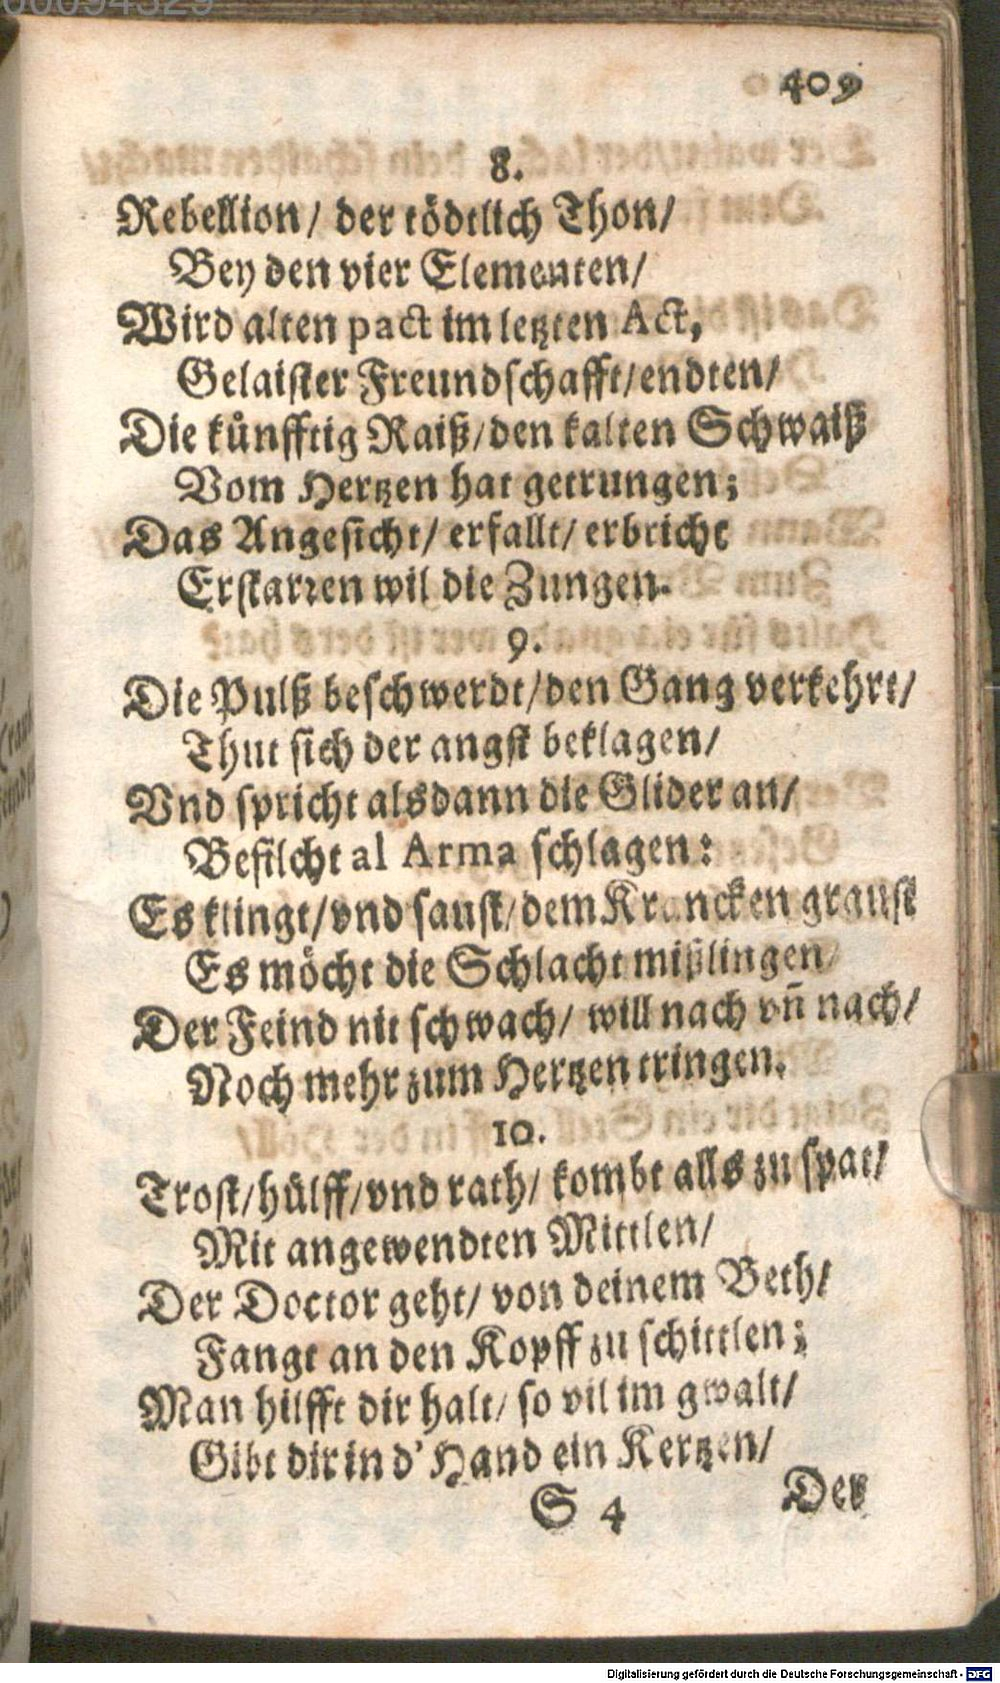 00094329
409
8.
Rebellion/ der tödtlich Thon/
Bey den vier Elementen/
Wird alten pact im letzten Act,
Gelaister Freundschafft/ endten/
Die künfftig Raiß/ den kalten Schwaiß
Vom Hertzen hat getrungen;
Das Angesicht/ erfallt/ erbricht
Erstarren wil die Zungen.
9.
Die Pulß beschwerdt/ den Gang verkehrt/
Thut sich der angst beklagen/
Vnd spricht alsdann die Glider an/
Befilcht al Arma schlagen:
Es klingt/ vnd saust/ dem Krancken graust
Es möcht die Schlacht mißlingen/
Der Feind nit schwach/ will nach vñ nach/
Noch mehr zum Hertzen tringen.
10.
Trost/ hülff/ vnd rath/ kombt alls zu spat/
Mit angewendten Mittlen/
Der Doctor geht/ von deinem Beth/
Fangt an den Kopff zu schittlen;
Man hilfft dir halt/ so vil im gwalt/
Gibt dir in d' Hand ein Kertzen/
S 4 Der
Digitalisierung gefördert durch die Deutsche Forschungsgemeinschaft - DFG